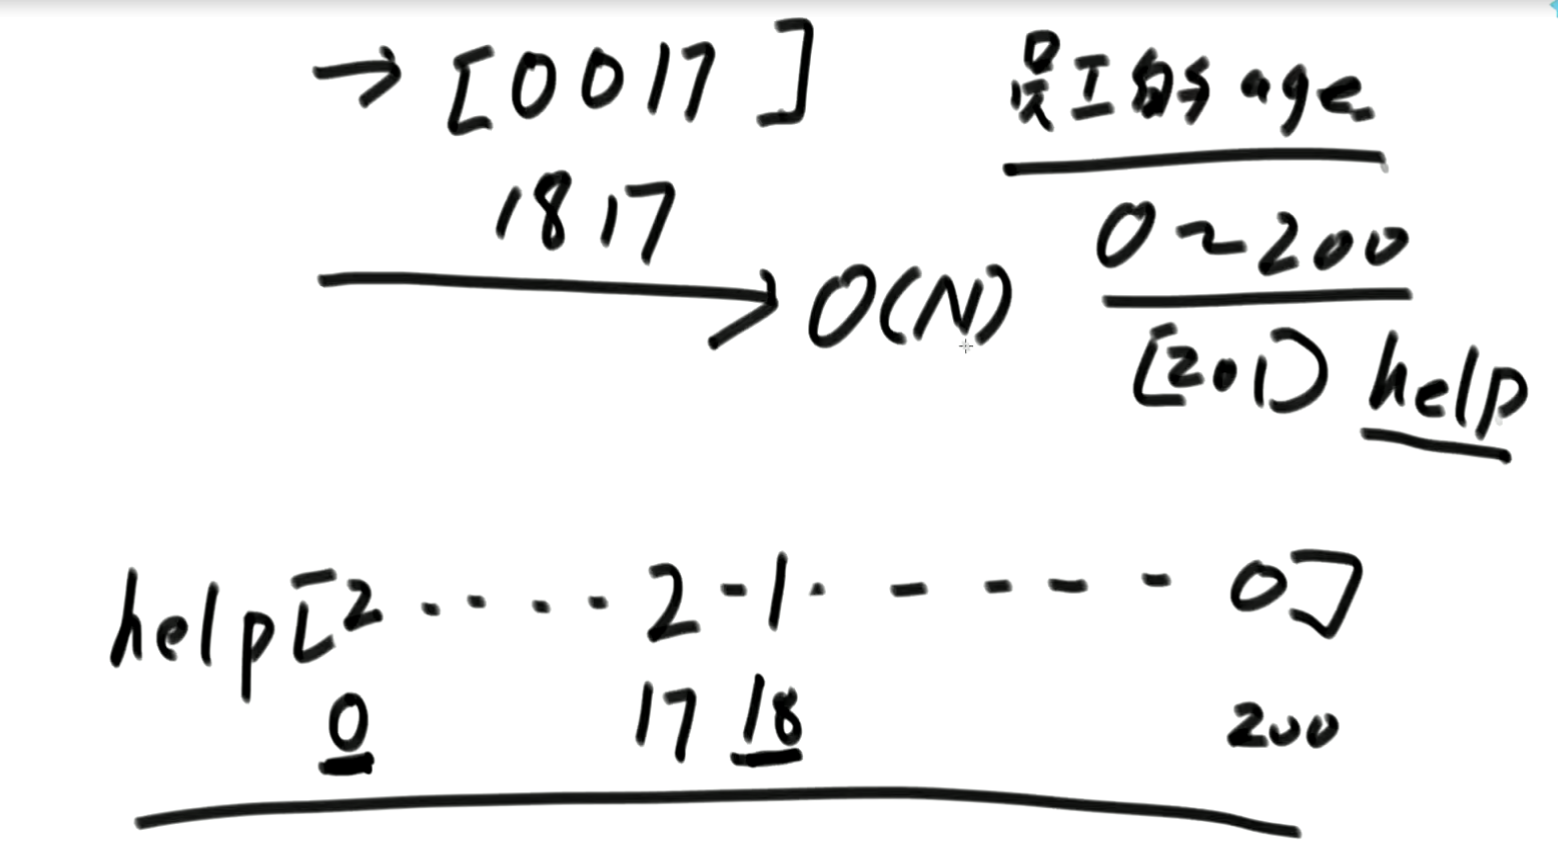 → [0 0 17 ]
18 17
O(N)
员工的age
0~200
[201) help
help[2 · · · · 2 - 1 · - - - - 0]
0 17 18 200